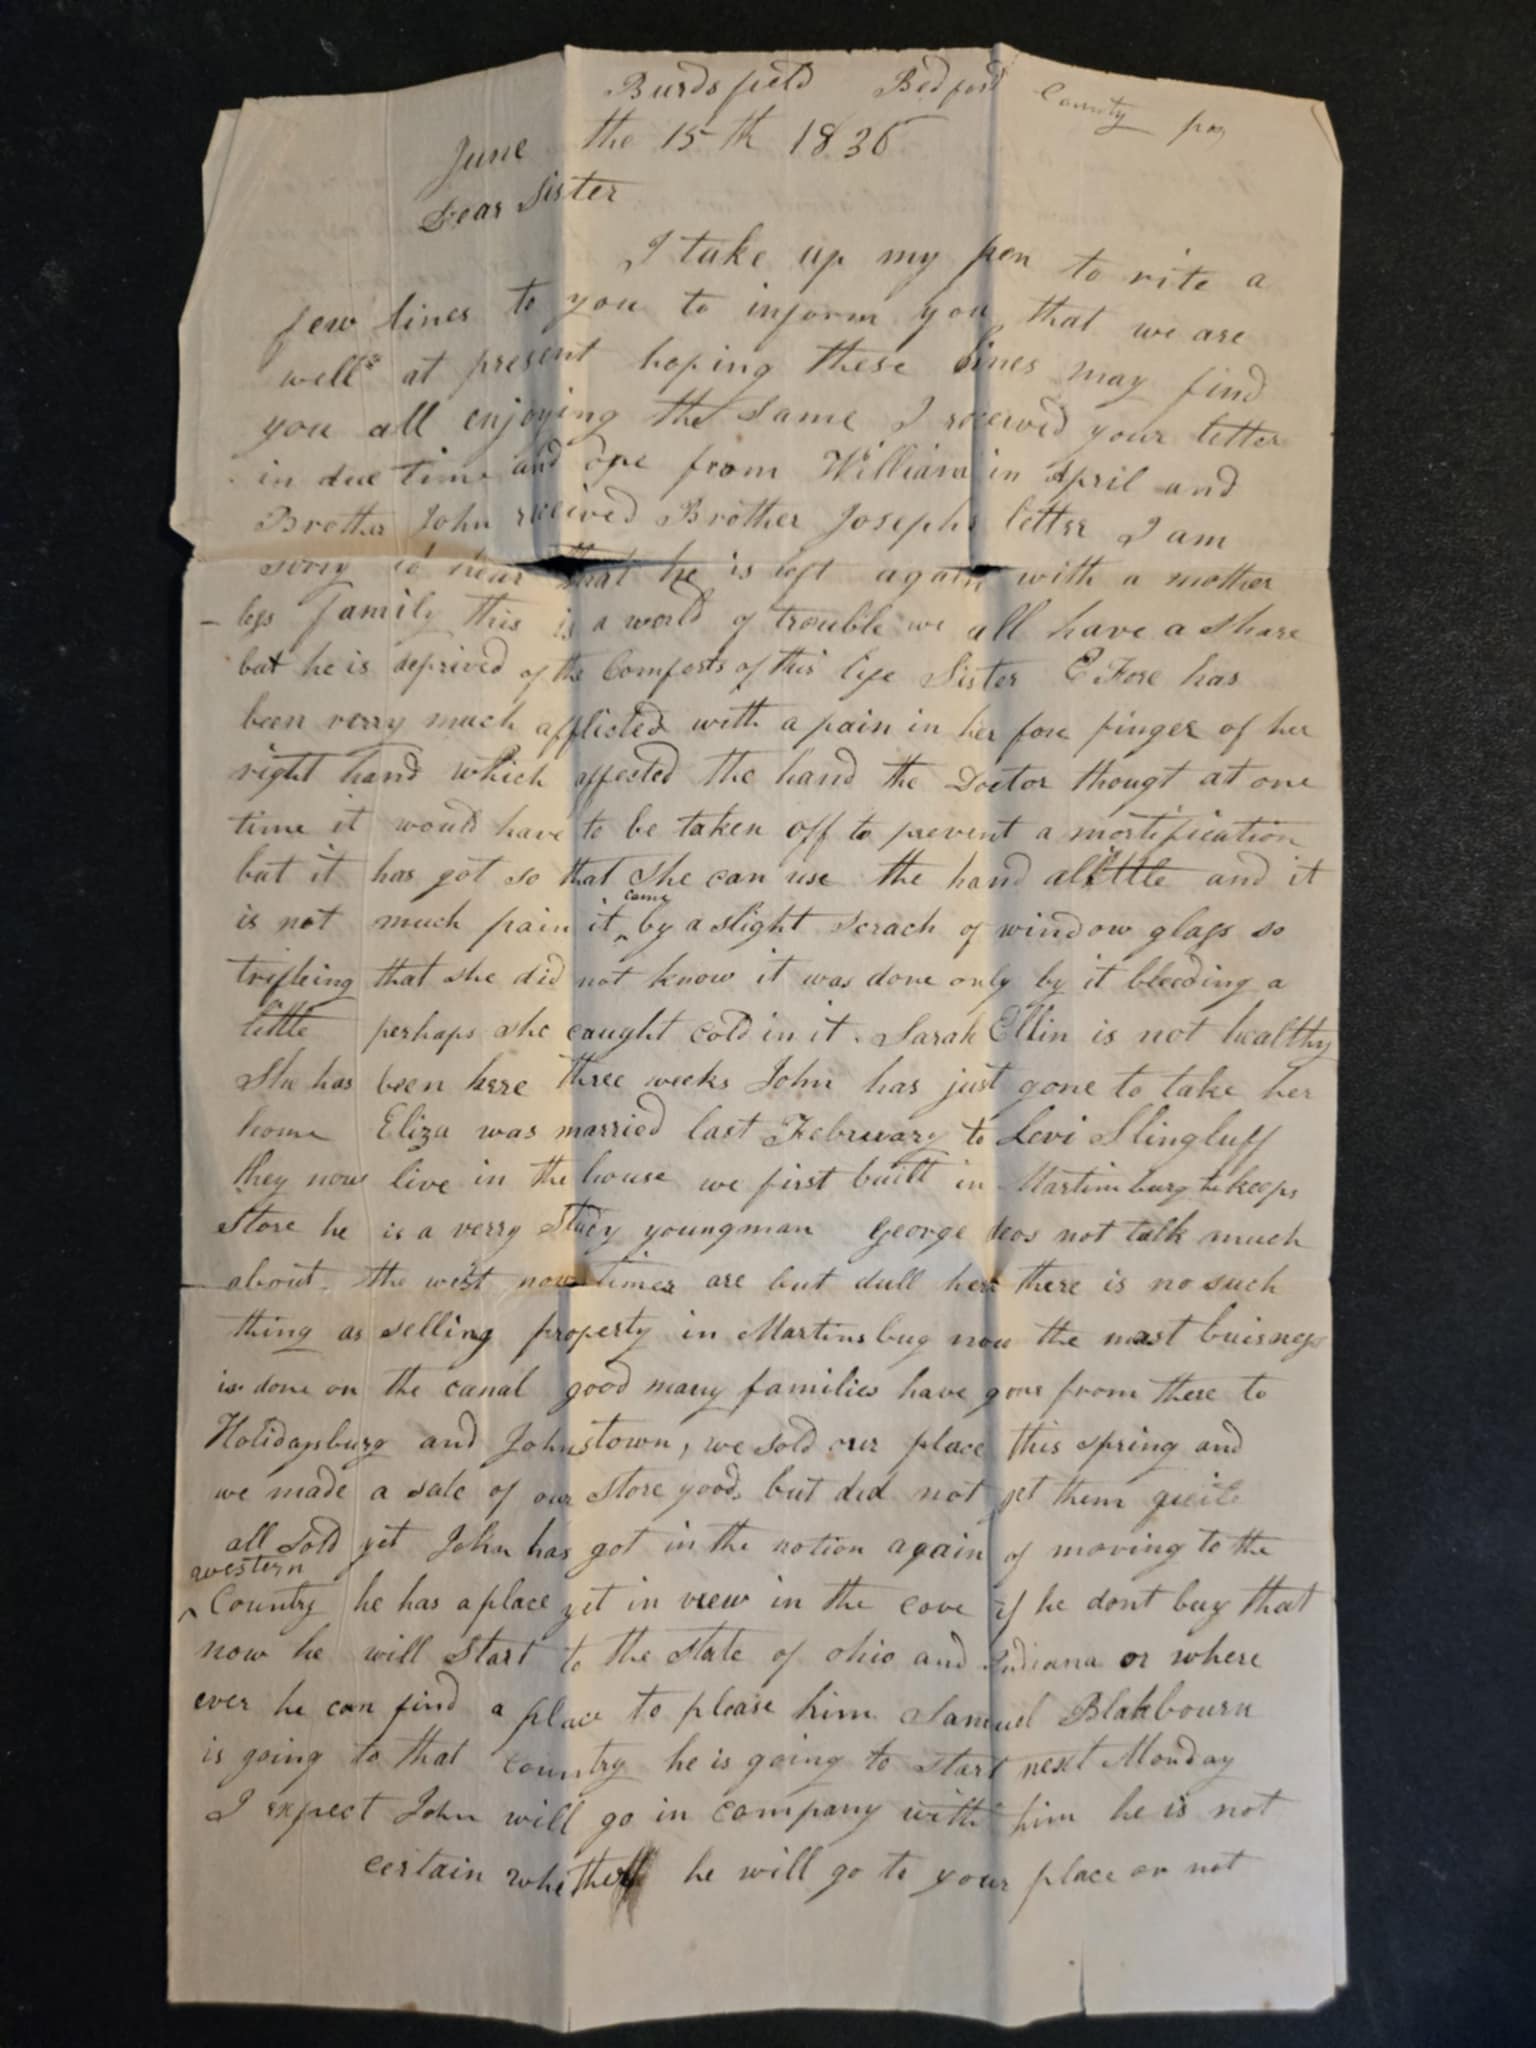 Burdsfield Bedford County pa
June the 15th 1836
Dear Sister
I take up my pen to rite a
few lines to you to inform you that we are
well at present hoping these lines may find
you all enjoying the same I received your letter
in due time and one from William in April and
Brother John received Brother Josephs letter I am
sorry to hear that he is left again with a mother
- less family this is a world of trouble we all have a share
but he is deprived of the Comforts of this life Sister E Fore has
been verry much afflicted with a pain in her fore finger of her
right hand which affected the hand the Doctor thougt at one
time it would have to be taken off to prevent a mortification
but it has got so that she can use the hand alittle and it
is not much pain it came by a slight scrach of window glass so
trifleing that she did not know it was done only by it bleeding a
little perhaps she caught cold in it. Sarah Ellin is not healthy
She has been here three weeks John has just gone to take her
home Eliza was married last February to Levi Slingluff
they now live in the house we first built in Martinsburg he keeps
Store he is a verry study youngman George deos not talk much
about the west now times are but dull here there is no such
thing as selling property in Martinsbug now the most buisness
is done on the canal good many families have gone from there to
Holidaysburg and Johnstown, we sold our place this spring and
we made a sale of our store goods but did not get them quite
all sold yet John has got in the notion again of moving to the
western
Country he has a place yet in view in the cove if he dont buy that
now he will start to the state of ohio and Indiana or where
ever he can find a place to please him Samuel Blakbourn
is going to that country he is going to start next Monday
I expect John will go in company with him he is not
certain whether he will go to your place or not